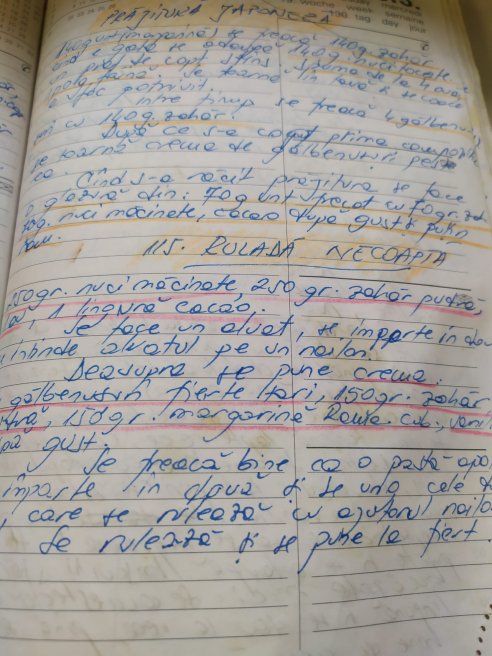 PRĂJITURĂ JAPONEZĂ
140gr unt (margarină) se freacă 140 gr. zahăr
când e gata se adaugă 140g. nuci tocate,
un praf de copt stins spuma de la 4 ouă
puțină făină. Se toarnă în tavă și se coace
la foc potrivit.
Între timp se freacă 4 gălbenuș
cu 140g zahăr.
După ce s-a copt prima compoziț
se toarnă crema de gălbenușuri peste
ea.
Când s-a răcit prăjitura se face
o glazură din: 70g unt frecat cu 70gr. zah
70g. nuci măcinate, cacao după gust și puțin
rom.
115. RULADĂ NECOAPTĂ
250gr. nuci măcinate, 250 gr. zahăr pudră,
1 lingură cacao.
Se face un aluat, se împarte în dou
întinde aluatul pe un nailon.
Deasupra se pune crema.
gălbenușuri fierte tari, 150gr. zahăr
150gr. margarină Rama
după gust.
Se freacă bine ca o pastă apo
împarte în două și se ung cele d
care se rulează cu ajutorul nailo
Se rulează și se pune la